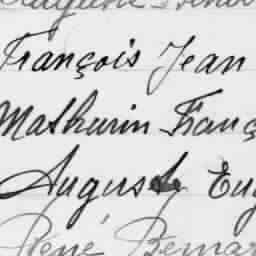 François Jean
Mathurin Franç
Auguste Eug
René Bernar